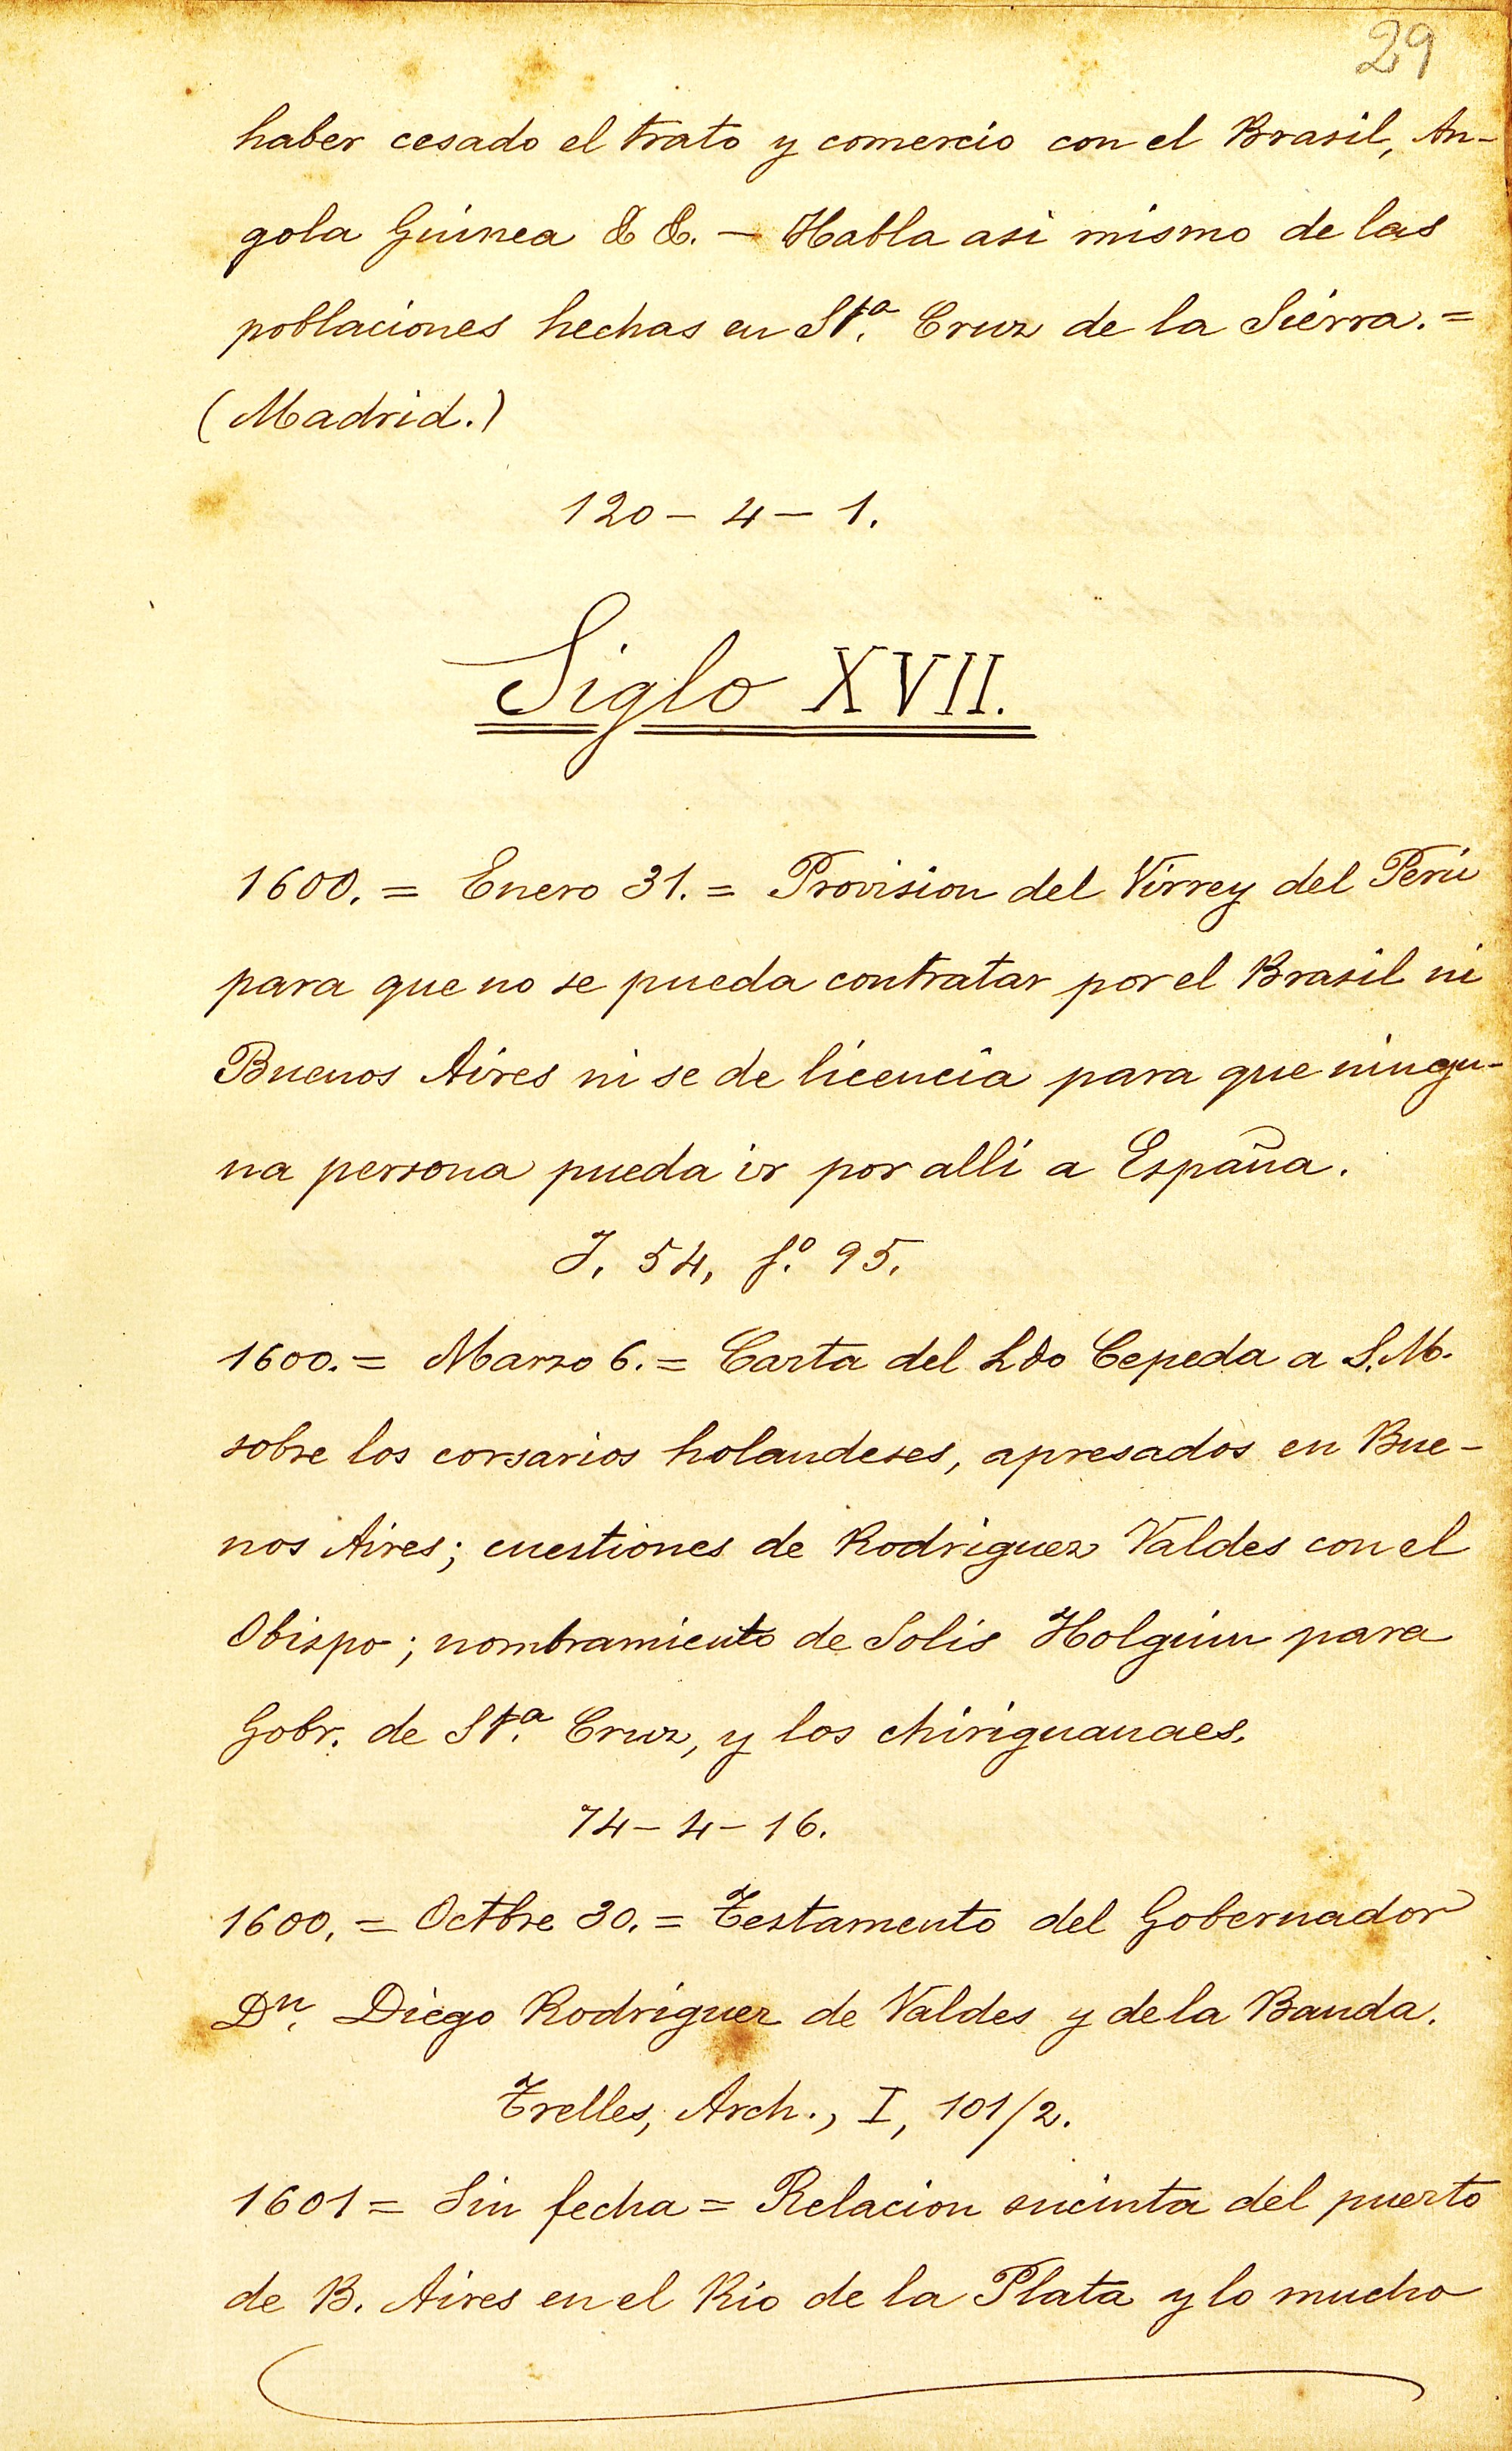 29
haber cesado el trato y comercio con el Brasil, An-
gola Guinea & &. — Habla asi mismo de las
poblaciones hechas en Sta. Cruz de la Sierra. =
(Madrid.)
120 - 4 - 1.
Siglo XVII.
1600. = Enero 31. = Provision del Virrey del Perú
para que no se pueda contratar por el Brasil ni
Buenos Aires ni se de licencia para que ningu-
na persona pueda ir por alli a España.
J. 54, fº. 95.
1600. = Marzo 6. = Carta del Ldo Cepeda a S.M.
sobre los corsarios holandeses, apresados en Bue-
nos Aires; cuestiones de Rodriguez Valdes con el
Obispo; nombramiento de Solis Holguin para
Gobr. de Sta. Cruz, y los chiriguanaes.
74 - 4 - 16.
1600. = Octbre 30. = Testamento del Gobernador
Dn. Diego Rodriguez de Valdes y de la Banda.
Trelles, Arch., I, 101/2.
1601 = Sin fecha = Relacion sucinta del puerto
de B. Aires en el Rio de la Plata y lo mucho